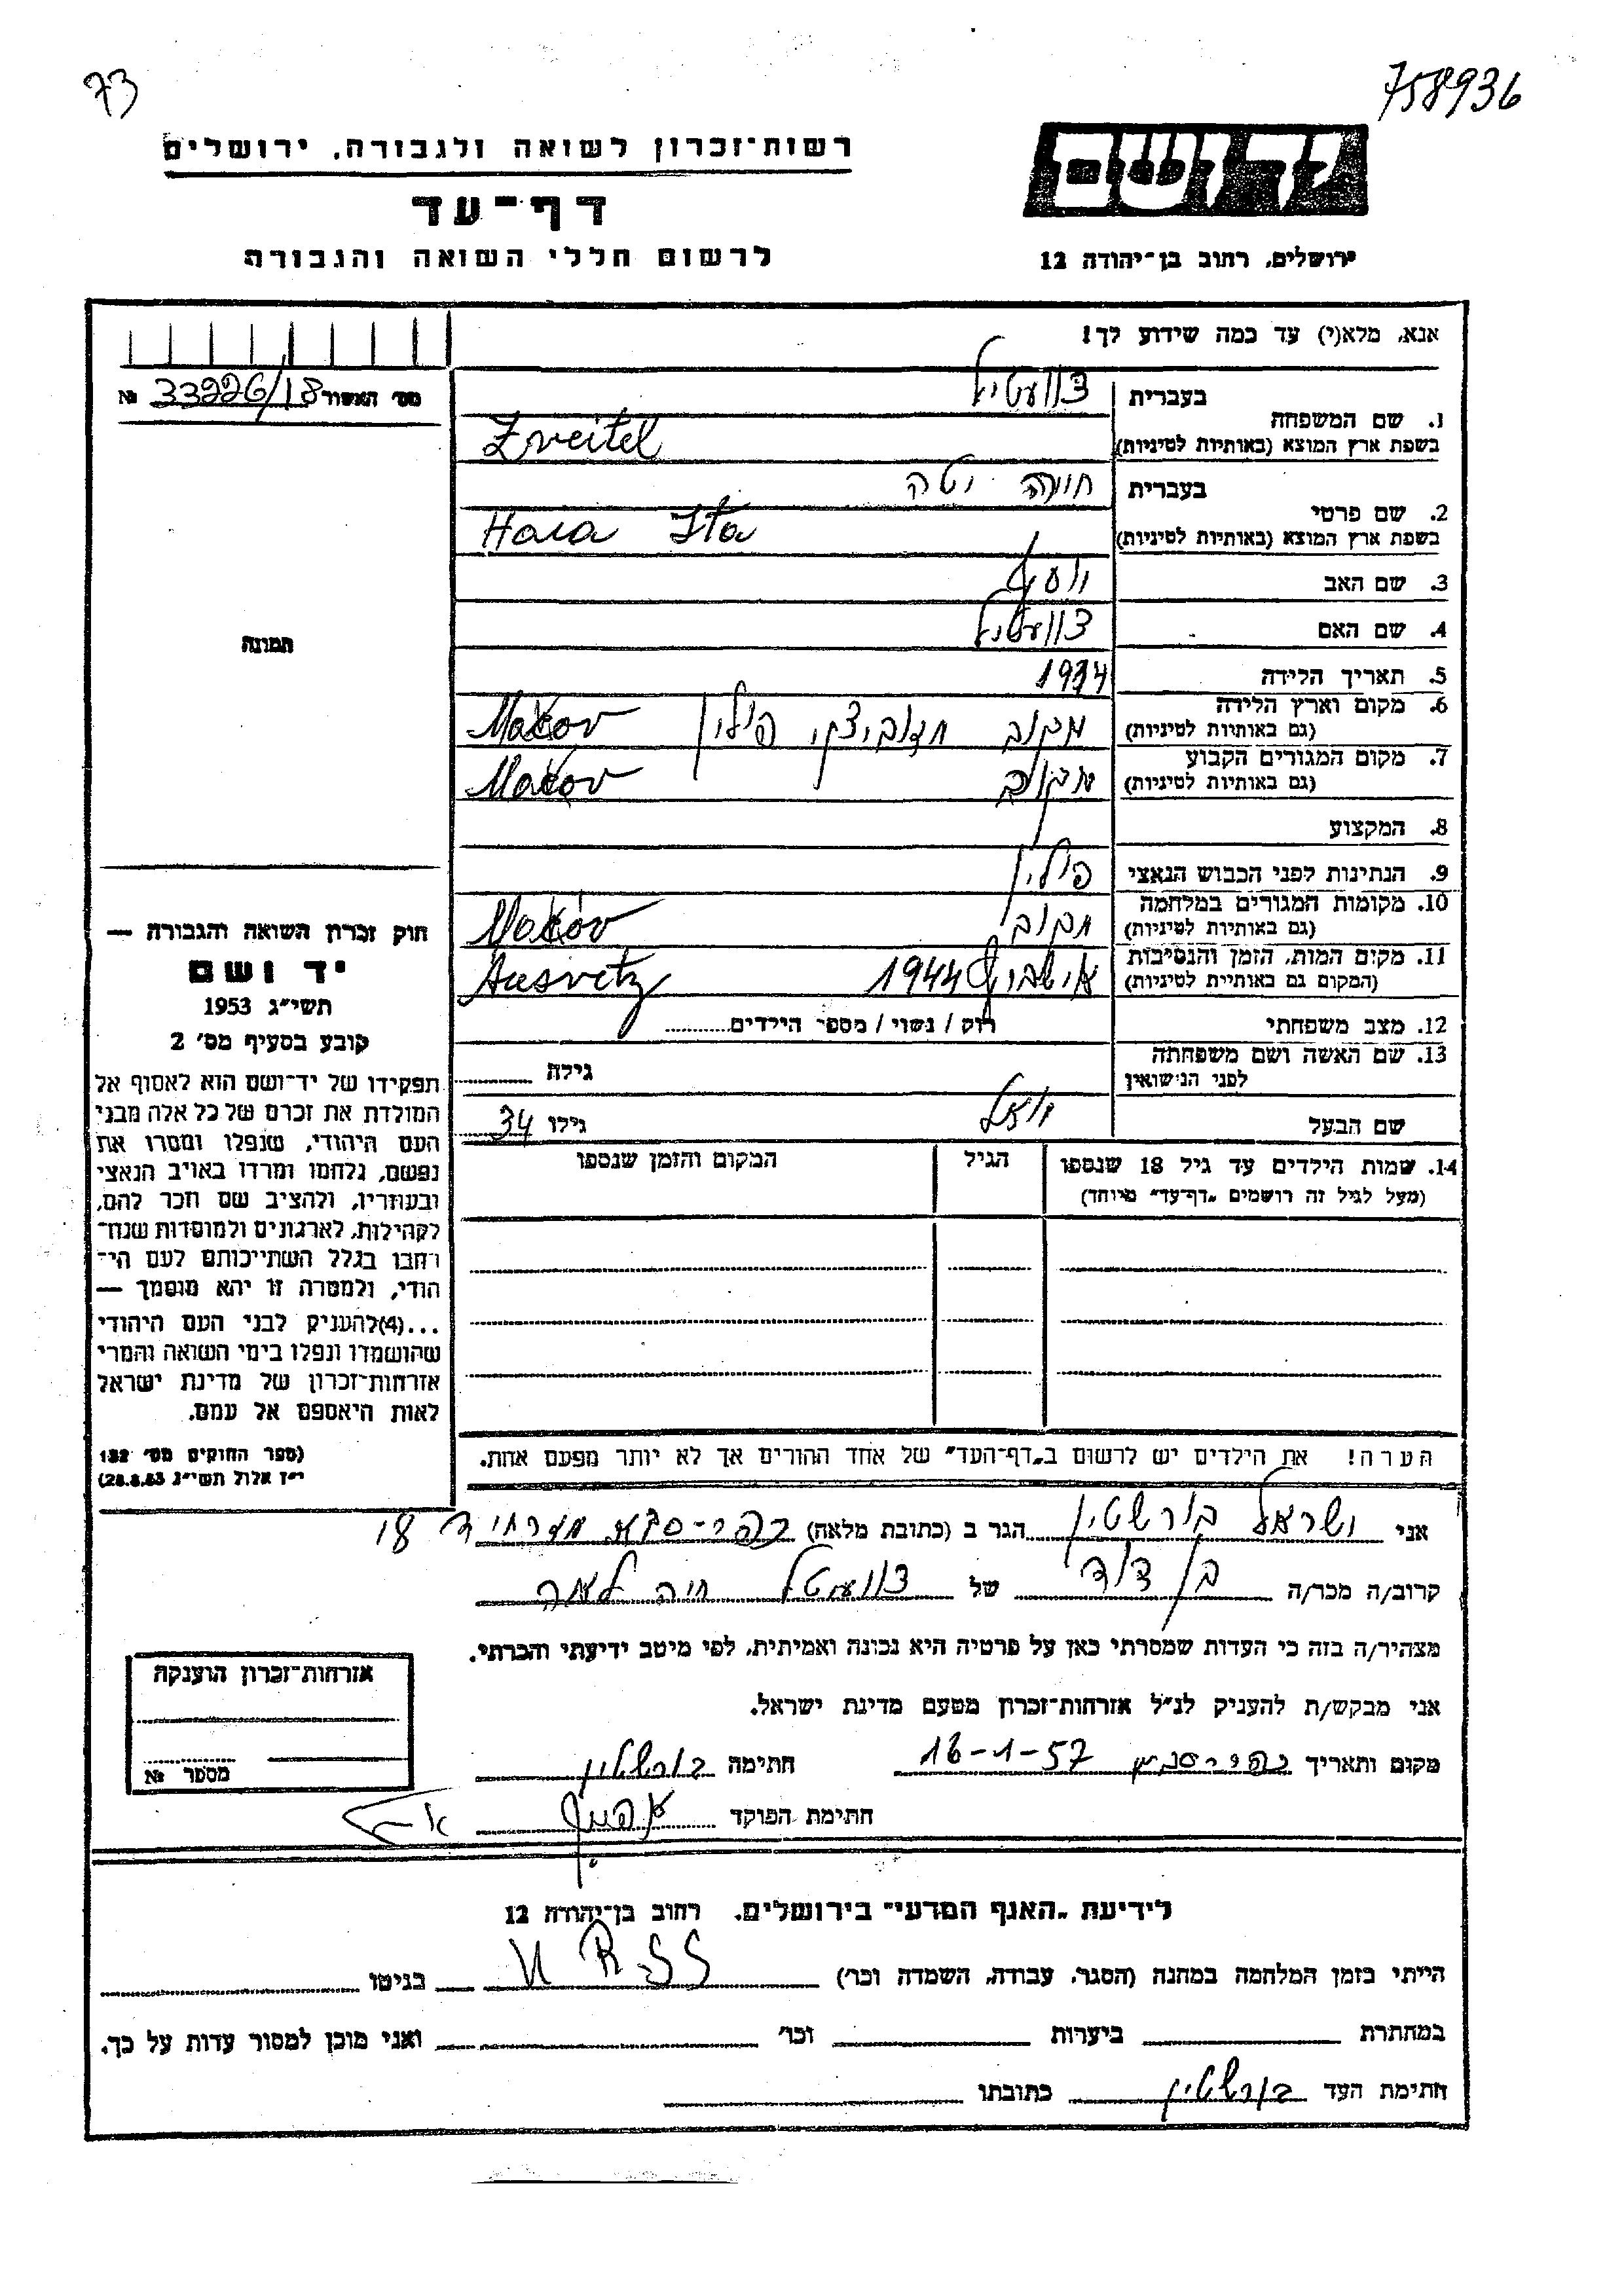 73
758936
רשות־זכרון לשואה ולגבורה, ירושלים
דף־עד
לרשום חללי השואה והגבורה
יד ושם
ירושלים, רחוב בן־יהודה 12
אנא, מלא(י) עד כמה שידוע לך!
מס׳ האשור 33226/18 №
1. שם המשפחה
בעברית
צוועטיל
בשפת ארץ המוצא (באותיות לטיניות)
Zveitel
2. שם פרטי
בעברית
חיה יטה
בשפת ארץ המוצא (באותיות לטיניות)
Haia Ita
3. שם האב יוסף
4. שם האם צוועטיל
תמונה
5. תאריך הלידה 1934
6. מקום וארץ הלידה
(גם באותיות לטיניות)
מקוב מזוביצקי פולין Makov
7. מקום המגורים הקבוע
(גם באותיות לטיניות)
מקוב Makov
8. המקצוע
9. הנתינות לפני הכבוש הנאצי פולין
10. מקומות המגורים במלחמה
(גם באותיות לטיניות)
מקוב Makov
11. מקום המות, הזמן והנסיבות
(המקום גם באותיות לטיניות)
1944 Ausvetz
12. מצב משפחתי רוק / נשוי / מספר הילדים
13. שם האשה ושם משפחתה
לפני הנישואין
גילה
שם הבעל
גילו 34
14. שמות הילדים עד גיל 18 שנספו
(מעל לגיל זה רושמים "דף־עד" מיוחד)
הגיל
המקום והזמן שנספו
הערה! את הילדים יש לרשום ב"דף־העד" של אחד ההורים אך לא יותר מפעם אחת.
חוק זכרון השואה והגבורה —
יד ושם
תשי״ג 1953
קובע בסעיף מס׳ 2
תפקידו של יד־ושם הוא לאסוף אל
המולדת את זכרם של כל אלה מבני
העם היהודי, שנפלו ומסרו את
נפשם, נלחמו ומרדו באויב הנאצי
ובעוזריו, ולהציב שם וזכר להם,
לקהילות, לארגונים ולמוסדות שנח־
רחבו בגלל השתייכותם לעם הי־
הודי, ולמטרה זו יהא מוסמך —
...(4)להעניק לבני העם היהודי
שהושמדו ונפלו בימי השואה והמרי
אזרחות־זכרון של מדינת ישראל
לאות היאספם אל עמם.
(ספר החוקים מס׳ 132
י״ז אלול תשי״ג 28.8.53)
אני ישראל בורשטין הגר ב (כתובת מלאה) כפר-סבא מזרחי ד 18
קרוב/ה מכר/ה בן דוד של צוועטל חיה
מצהיר/ה בזה כי העדות שמסרתי כאן על פרטיה היא נכונה ואמיתית, לפי מיטב ידיעתי והכרתי.
אני מבקש/ת להעניק לנ״ל אזרחות־זכרון מטעם מדינת ישראל.
מקום ותאריך כפר-סבא 16-1-57 חתימה בורשטין
חתימת הפוקד
אזרחות־זכרון הוענקה
מספר №
לידיעת "האגף המדעי" בירושלים, רחוב בן־יהודה 12
הייתי בזמן המלחמה במחנה (הסגר, עבודה, השמדה וכו׳) U R S S בגיטו
במחתרת ביערות וכו׳ ואני מוכן למסור עדות על כך.
חתימת העד בורשטין כתובתו